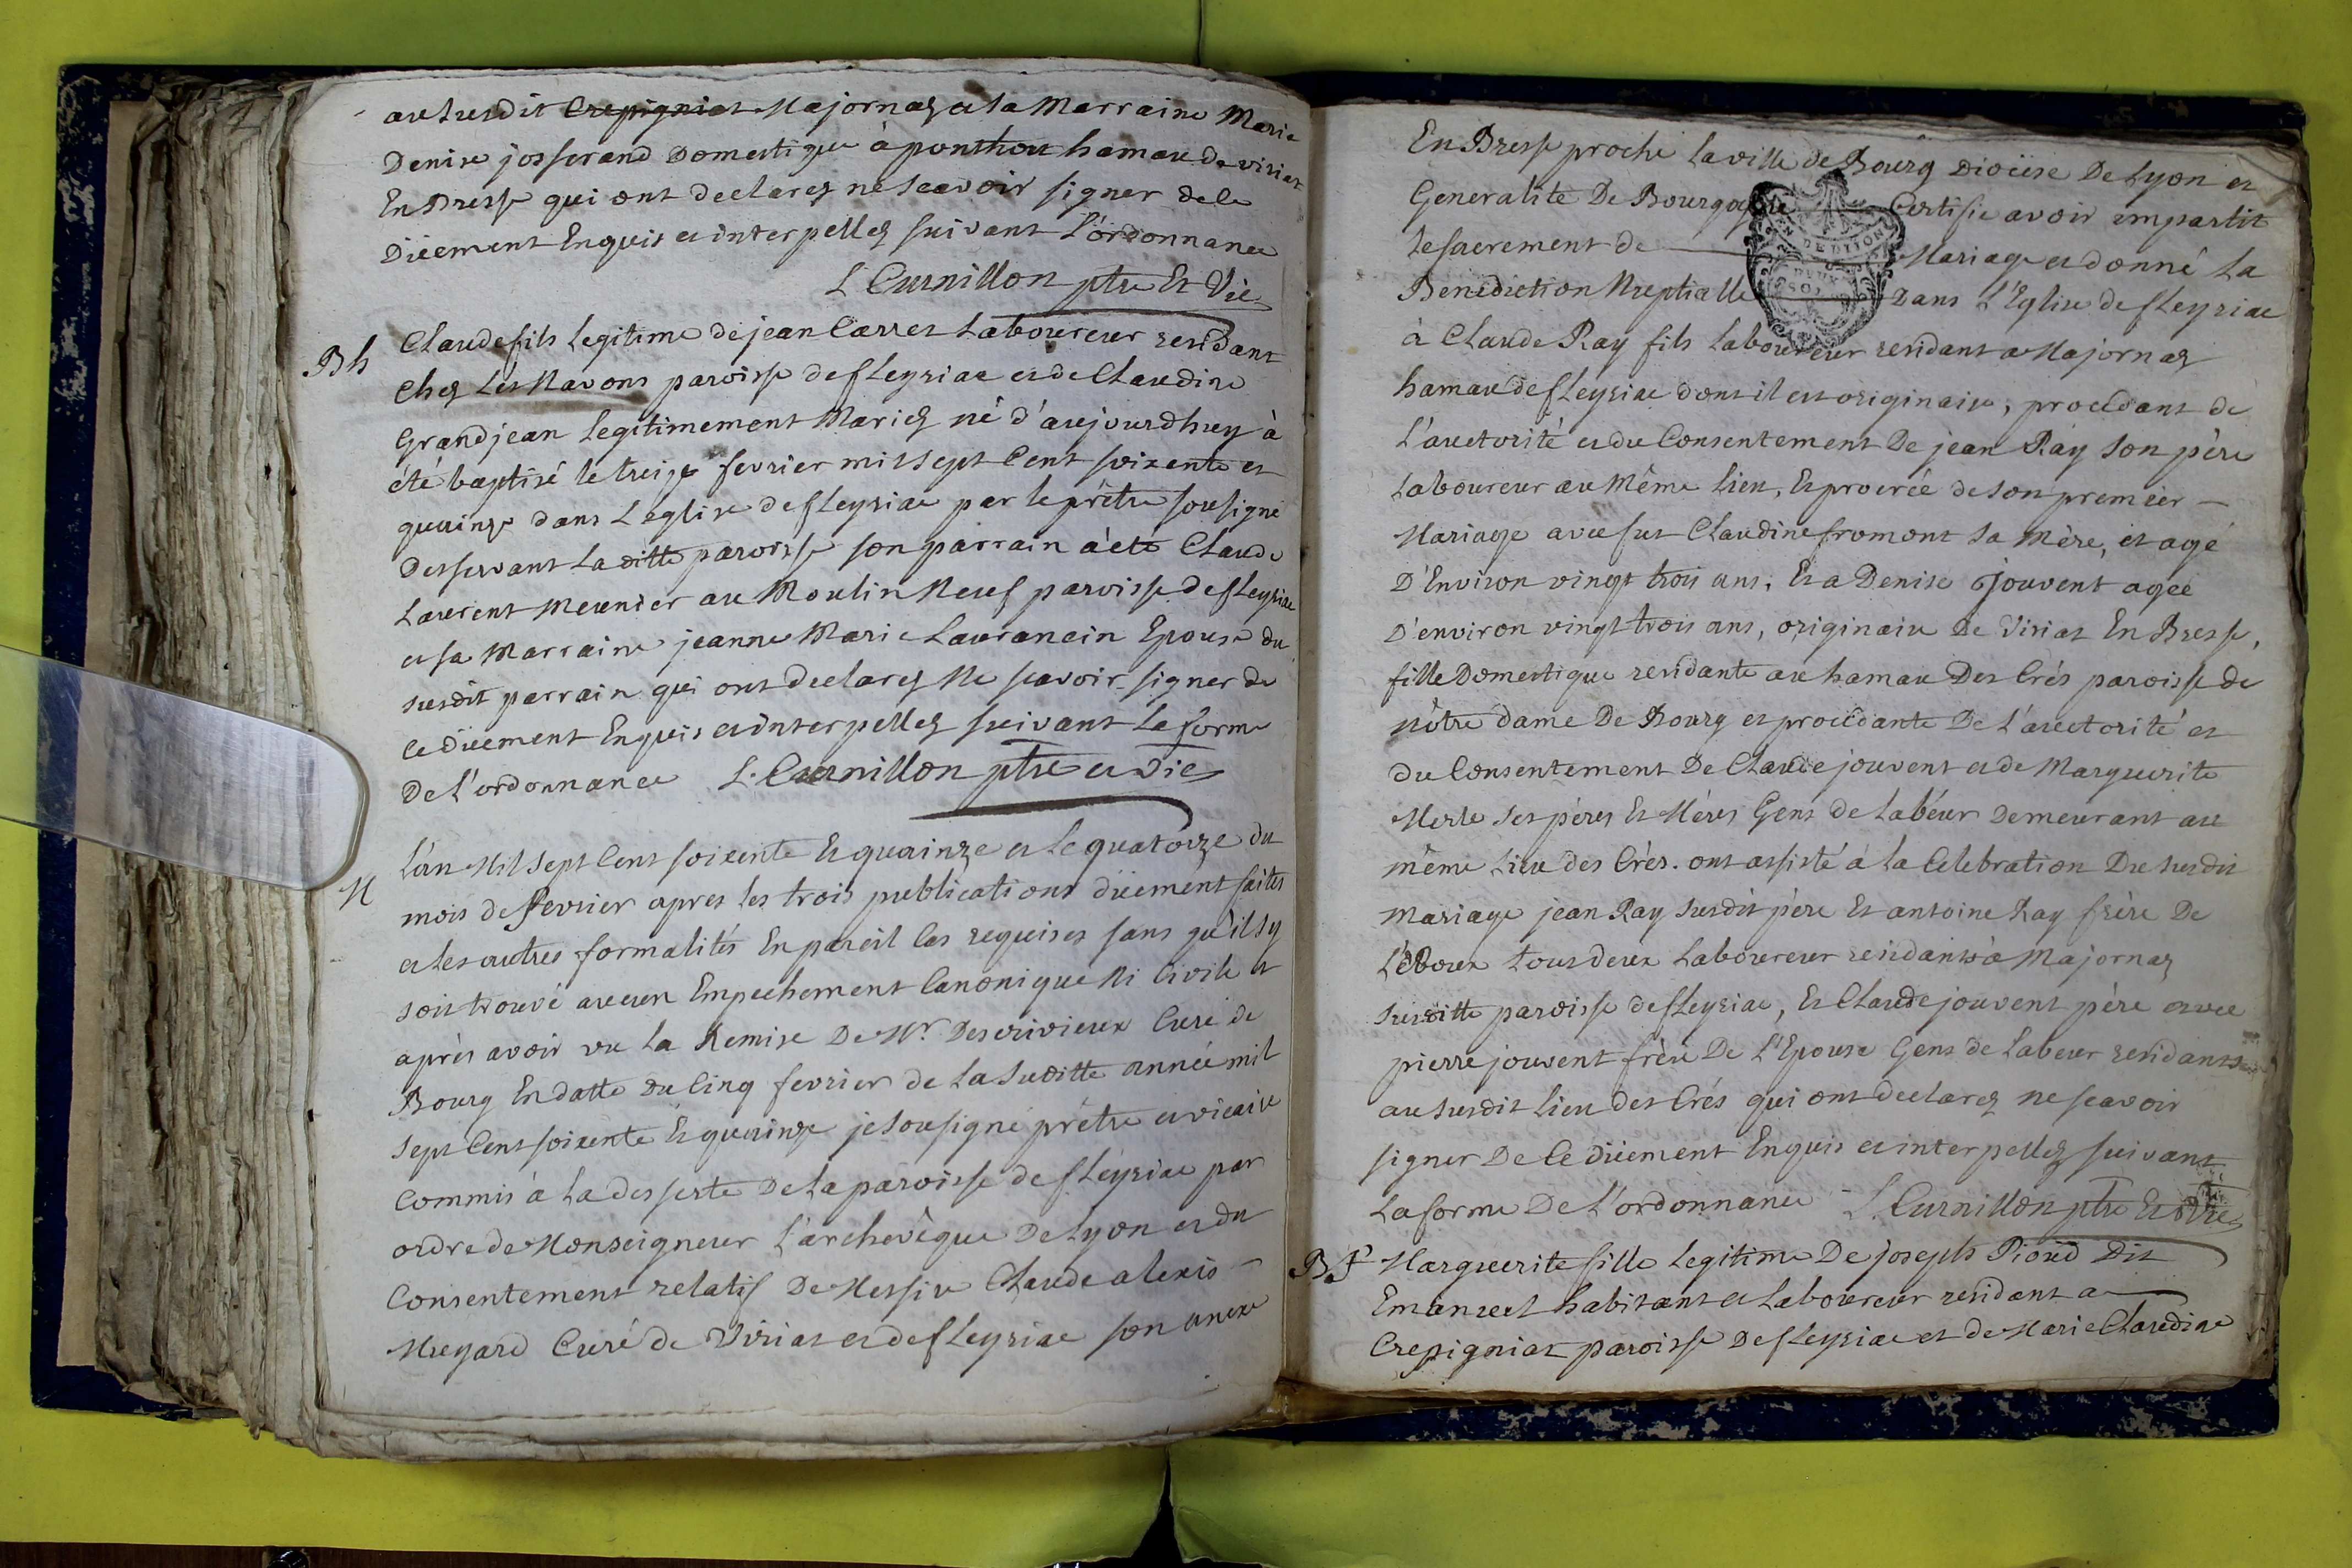 au susdit Crepigniat Majornaz et sa Marraine Marie
Denise josserand Domestique à ponthou hamau de viriat
En Bresse qui ont declarez ne scavoir signer de ce
Düement Enquis et interpellez suivant L'ordonnance
L Curnillon ptre Et Vic
Bh
Claude fils Legitime de jean Carret Laboureur residant
Chez Les Mavons paroisse de fleyriac et de Claudine
Grandjean Legitimement Mariez né d'aujourdhuy à
été baptisé le treize fevrier mil sept Cent soixente et
quainze dans L'eglise de fleyriac par le prêtre sousigné
Desservant La ditte paroisse son parrain à eté Claude
Laurent Meunier au Moulin Neuf paroisse de fleyriac
et sa Marraine jeanne Marie Laurancin Epouse du
susdit parrain qui ont declarez Ne scavoir signer de
ce Düement Enquis et interpellez suivant La forme
De L'ordonnance L. Curnillon ptre et vic
M
L'an Mil Sept Cent soixente Et quainze et le quatorze du
mois de fevrier apres les trois publications düement faites
et les autres formalités En pareil Cas requises sans qu'il sy
soit trouvé aucun Empechement Canonique Ni Civile et
après avoir vu La Remise De Mr. Descrivieux Curé de
Bourg En datte du Cinq fevrier de La suditte année mil
sept Cent soixente Et quainze je sousigné prêtre et vicaire
Commis à La desserte De La paroisse de fleyriac par
ordre de Monseigneur L'archevêque De Lyon et du
Consentement relatif De Messire Claude alexis
Muyard Curé de Viriat et de fleyriac son anexe
En Bresse proche La ville de Bourg Diocèse De Lyon et
Generalité De Bourgogne Certifie avoir impartit
Le sacrement de Mariage et donné La
N DE DIJON
DEUX
SOLS
Benediction Nuptialle Dans L'Eglise de fleyriac
à Claude Ray fils Laboureur residant a Majornaz
hamau de fleyriac dont il est originaire, procedant de
L'auctorité et du Consentement De jean Ray son père
Laboureur au Même Lieu, Et procréé de son premier
Mariage avec fut Claudine fromont sa Mère, et agé
D'Environ vingt trois ans, Et a Denise Jouvent agée
D'environ vingt trois ans, originaire De Viriat En Bresse,
fille Domestique residante au hamau Des Crés paroisse de
nôtre dame De Bourg et procedante De L'auctorité et
du Consentement De Claude jouvent et de Marguerite
Merle ses pères Et Mères Gens de Labeur Demeurant au
même Lieu des Crés. ont assisté à La Celebration Du susdit
mariage jean Ray susdit père Et antoine Ray frère De
L'Epoux tous deux Laboureur residants à Majornaz
susditte paroisse de fleyriac, Et Claude jouvent père avec
pierre jouvent frère De L'Epouse Gens de Labeur residants
au susdit Lieu des Crés qui ont declarez ne scavoir
signer De Ce düement Enquis et interpellez suivant
La forme De L'ordonnance L. Curnillon ptre Et vic
Bf
Marguerite fille Legitime De joseph Pioud Dit
Emanuel habitant et Laboureur residant a
Crepigniat paroisse De fleyriac et de Marie Claudine